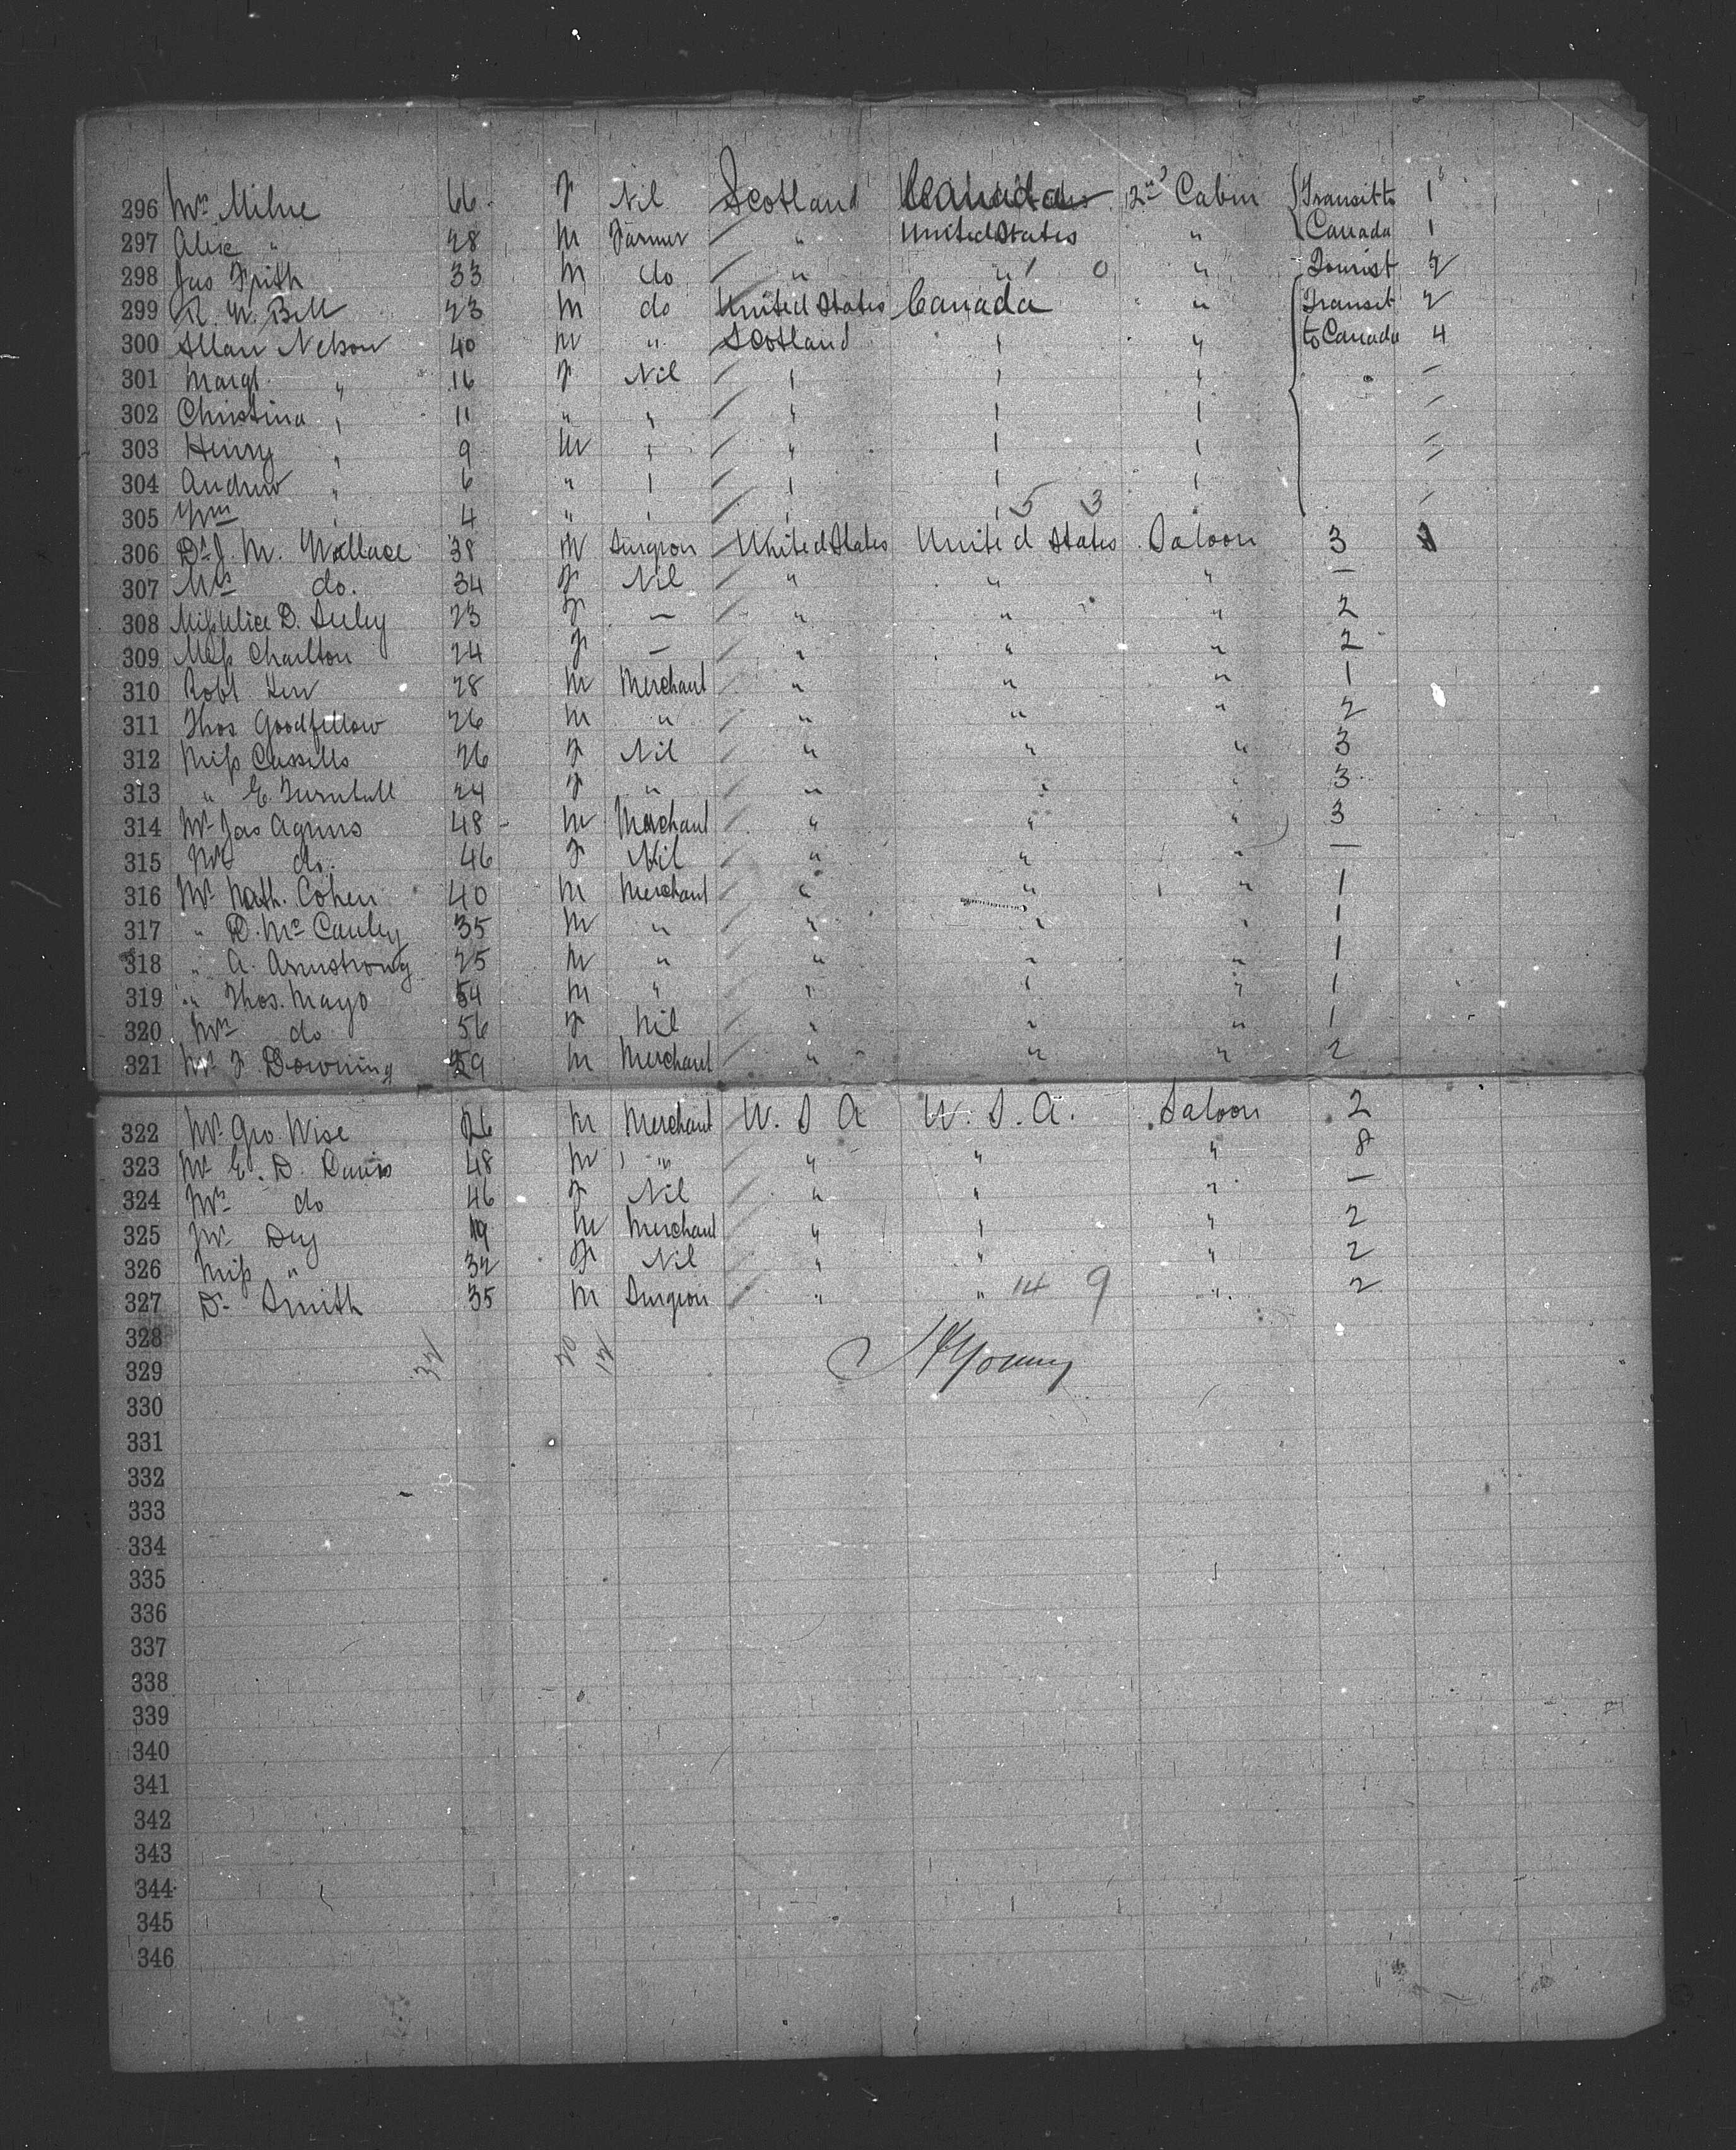 296 Mrs Milne 66 F Nil Scotland Canada 2nd Cabin Transit to 1
297 Alise " 28 M Farmer " United States " Canada 1
298 Jas Frith 33 M do " " 1 0 " Tourist 2
299 R. W. Bell 23 M do United States Canada " Transit 2
300 Allan Nelson 40 M " Scotland " " to Canada 4
301 Margt " 16 F Nil " " " —
302 Christina " 11 " " " " " —
303 Henry " 9 M " " " " —
304 Andrew " 6 " " " " "
305 Wm " 4 " " " " 5 3 —
306 Dr J. M. Wallace 38 M Surgeon United States United States Saloon 3
307 Mrs do. 34 F Nil " " " —
308 Miss Alice D. Seeley 23 F — " " " 2
309 Miss Charlton 24 F — " " " 2
310 Robt 28 M Merchant " " " 1
311 Thos Goodfellow 26 M " " " " 2
312 Miss Cassells 26 F Nil " " " 3
313 " E. Turnbull 24 F " " " " 3
314 Mr Jas 48 M Merchant " " " 3
315 Mrs do. 46 F Nil " " " —
316 Mr Nath. Cohen 40 M Merchant " " " 1
317 " D. McCauley 35 M " " " " 1
318 " A. Armstrong 25 M " " " " 1
319 " Thos. Mayo 54 M " " " " 1
320 Mrs do 56 F Nil " " " 1
321 Mr F Downing 59 M Merchant " " " 2
322 Mr Geo Wise 26 M Merchant U. S A U. S. A. Saloon 2
323 Mr E. D. Davis 48 M " " " " 8
324 Mrs do 46 F Nil " " " —
325 Mr Dey 19 M Merchant " " " 2
326 Miss " 32 F Nil " " " 2
327 Dr Smith 35 M Surgeon " " 14 9 " 2
328
329 32 20 12 Young
330
331
332
333
334
335
336
337
338
339
340
341
342
343
344
345
346